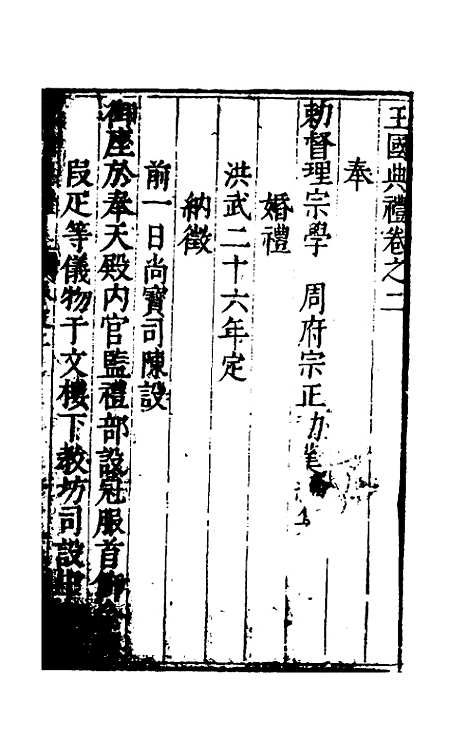 王國典禮卷之二
奉
勅督理宗學　周府宗正
婚禮
洪武二十六年定
納徵
前一日尚寶司陳設
御座於奉天殿内官監禮部設冠服首飾
叚疋等儀物于文樓下教坊司設